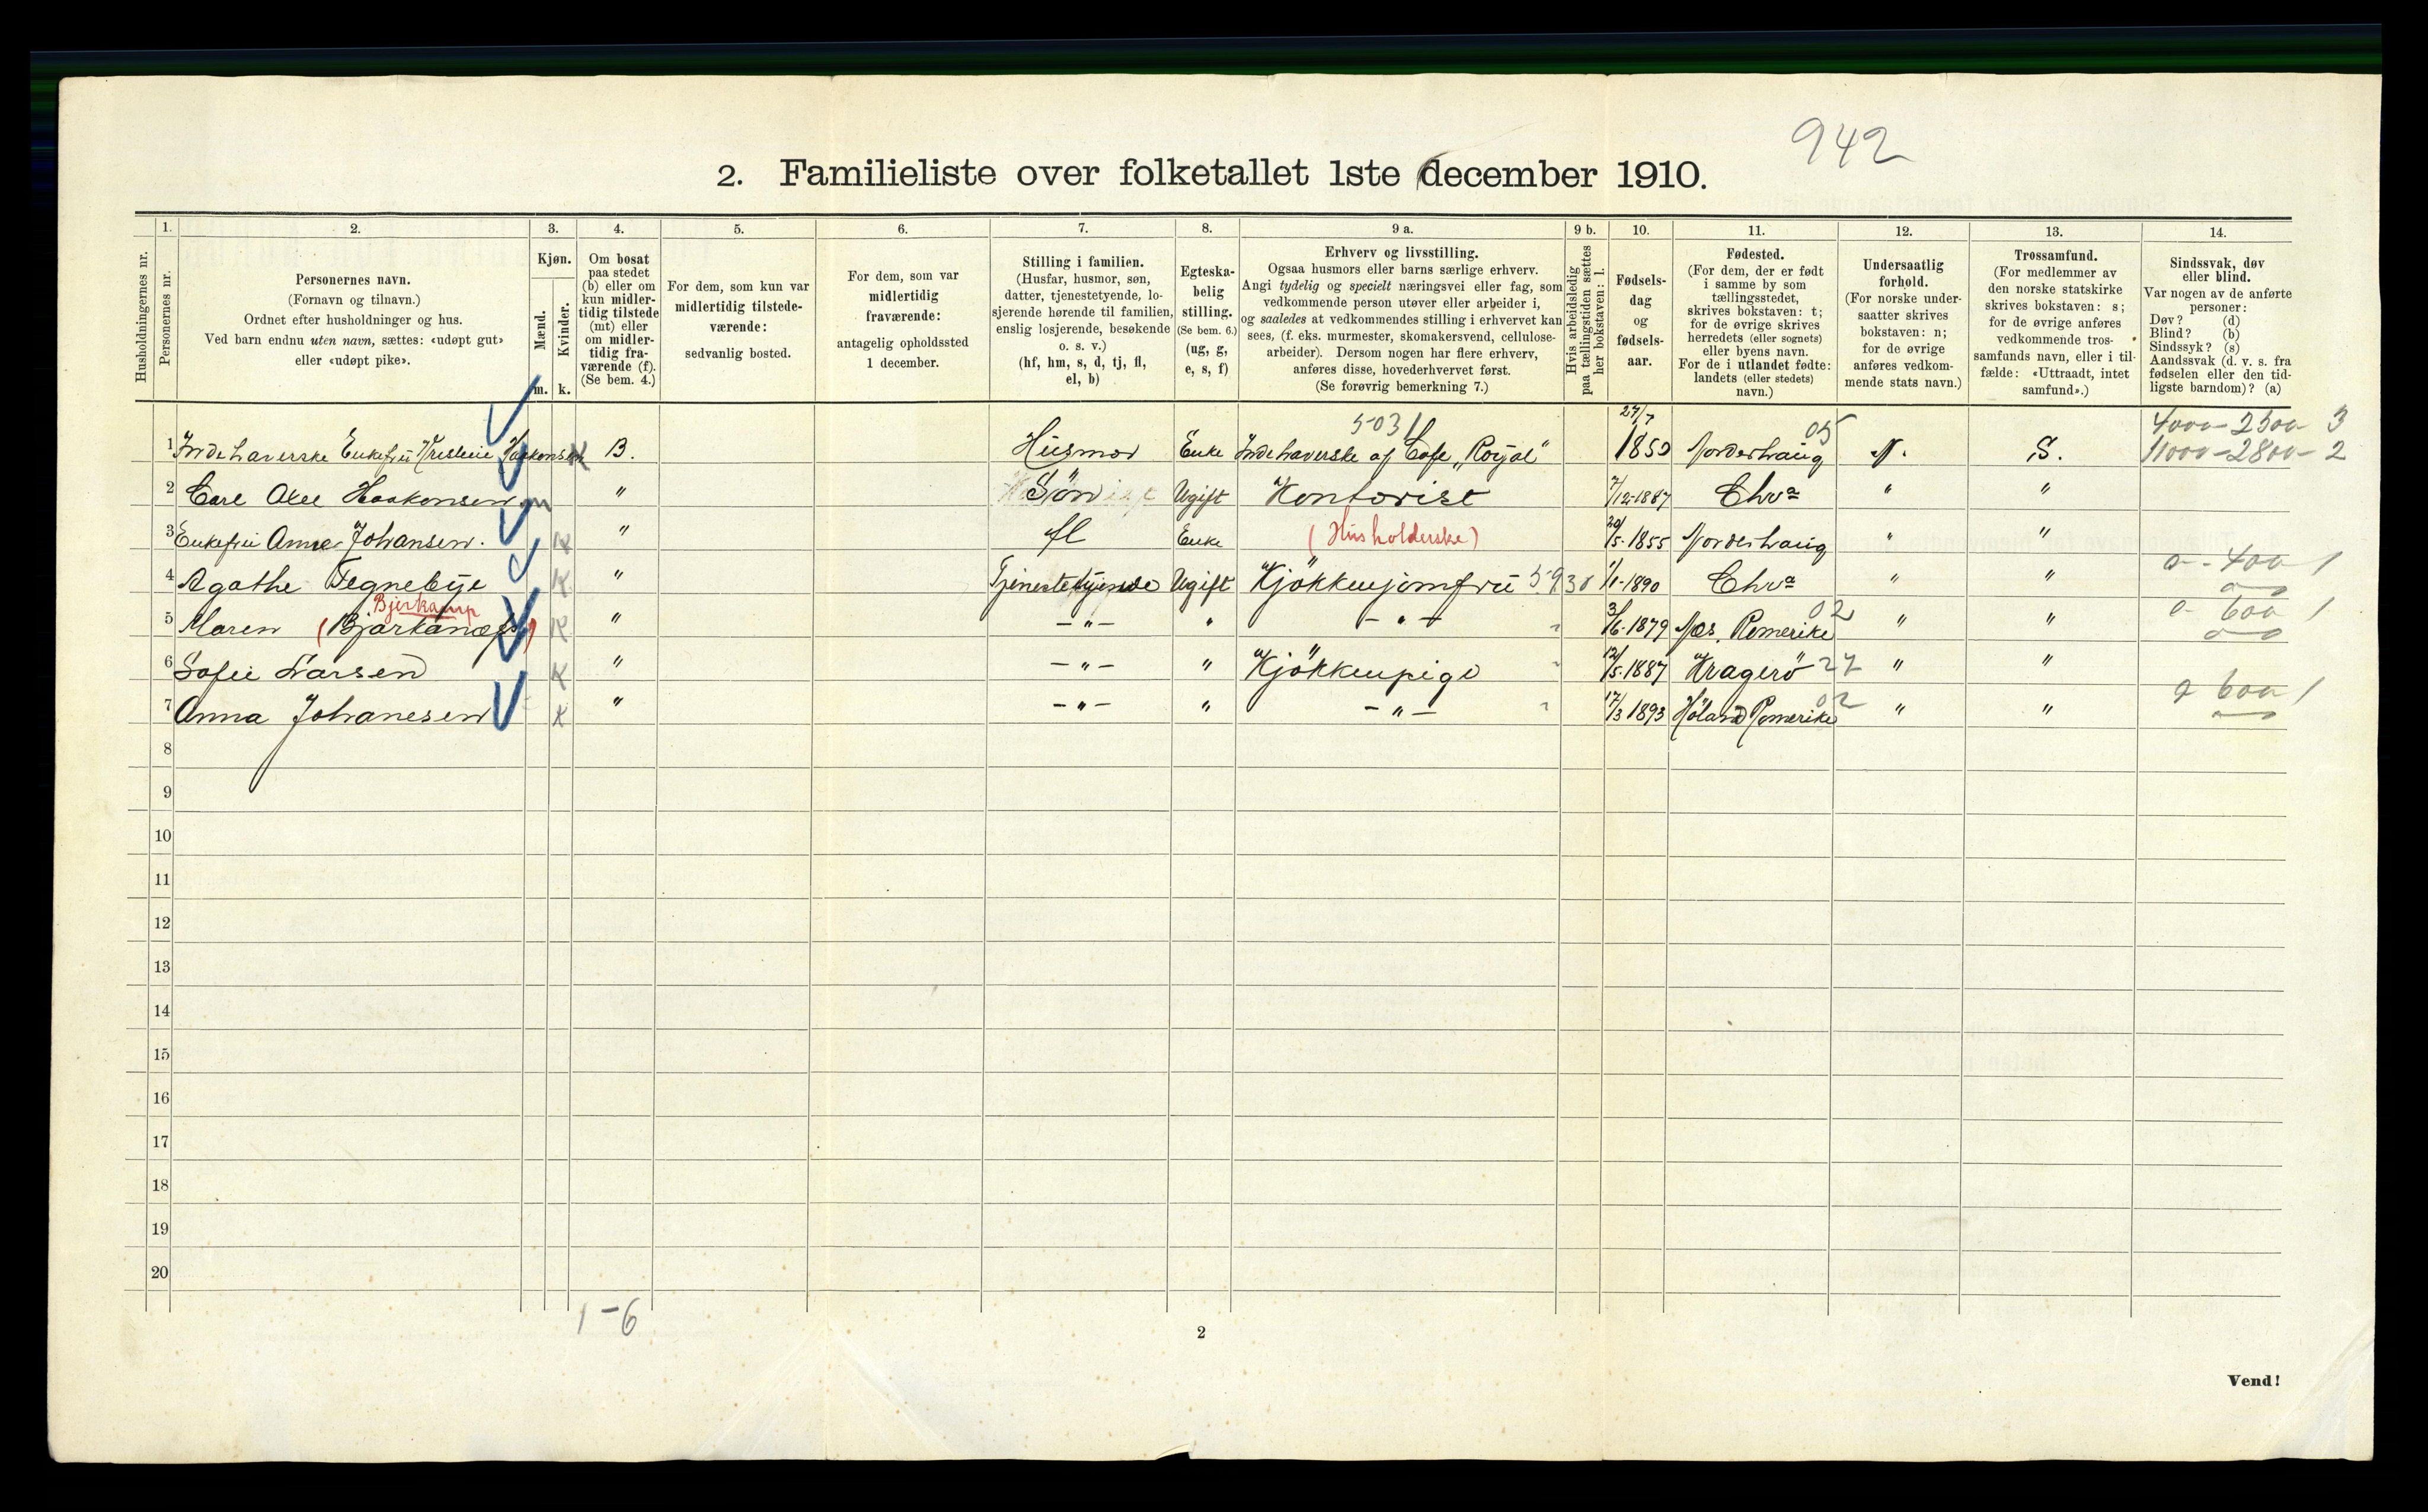 942
2. Familieliste over folketallet 1ste december 1910.
Husholdningernes nr.
1. Personernes nr.
2. Personernes navn. (Fornavn og tilnavn.) Ordnet efter husholdninger og hus. Ved barn endnu uten navn, sættes: «udøpt gut» eller «udøpt pike».
3. Kjøn. Mænd. m. Kvinder. k.
4. Om bosat paa stedet (b) eller om kun midlertidig tilstede (mt) eller om midlertidig fraværende (f). (Se bem. 4.)
5. For dem, som kun var midlertidig tilstedeværende: sedvanlig bosted.
6. For dem, som var midlertidig fraværende: antagelig opholdssted 1 december.
7. Stilling i familien. (Husfar, husmor, søn, datter, tjenestetyende, losjerende hørende til familien, enslig losjerende, besøkende o. s. v.) (hf, hm, s, d, tj, fl, el, b)
8. Egteskabelig stilling. (Se bem. 6.) (ug, g, e, s, f)
9 a. Erhverv og livsstilling. Ogsaa husmors eller barns særlige erhverv. Angi tydelig og specielt næringsvei eller fag, som vedkommende person utøver eller arbeider i, og saaledes at vedkommendes stilling i erhvervet kan sees, (f. eks. murmester, skomakersvend, cellulosearbeider). Dersom nogen har flere erhverv, anføres disse, hovederhvervet først. (Se forøvrig bemerkning 7.)
9 b. Hvis arbeidsledig paa tællingstiden sættes her bokstaven: l.
10. Fødselsdag og fødselsaar.
11. Fødested. (For dem, der er født i samme by som tællingsstedet, skrives bokstaven: t; for de øvrige skrives herredets (eller sognets) eller byens navn. For de i utlandet fødte: landets (eller stedets) navn.)
12. Undersaatlig forhold. (For norske undersaatter skrives bokstaven: n; for de øvrige anføres vedkommende stats navn.)
13. Trossamfund. (For medlemmer av den norske statskirke skrives bokstaven: s; for de øvrige anføres vedkommende trossamfunds navn, eller i tilfælde: «Uttraadt, intet samfund».)
14. Sindssvak, døv eller blind. Var nogen av de anførte personer: Døv? (d) Blind? (b) Sindssyk? (s) Aandssvak (d. v. s. fra fødselen eller den tidligste barndom)? (a)
5031 05 4000-2500 3
1 Indehaverske Enkefru Kristine Haakonsen K B. Husmor Enke Indehaverske af Cafe „Royal" 27/7 1850 Norderhaug N. S. 11000-2800-2
2 Carl Axel Haakonsen m " Søn Ugift Kontorist 7/12-1887 Chra " "
3 Enkefru Anne Johansen. K " fl Enke (Husholderske) 20/5-1855 Norderhaug " "
4 Agathe Tegnebye K " Tjenestetyende Ugift Kjökkenjomfru 5930 1/1-1890 Chra " " 0-400 1
Bjerkamp
5 Maren (Bjarkanæs) K " -"- " -"- 3/6-1879 Næs, Romerike 02 " " 0-600 1
6 Sofie Larsen K " -"- " Kjökkenpige 12/5-1887 Kragerö 27 " "
7 Anna Johanesen K " -"- " -"- 17/3 1893 Høland Romerike 02 " " 0 600 1
8
9
10
11
12
13
14
15
16
17
18
19
20
1-6
2
Vend!